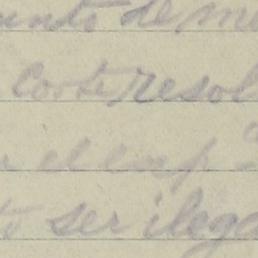 de me
Corte resol
el emp
ser ilega